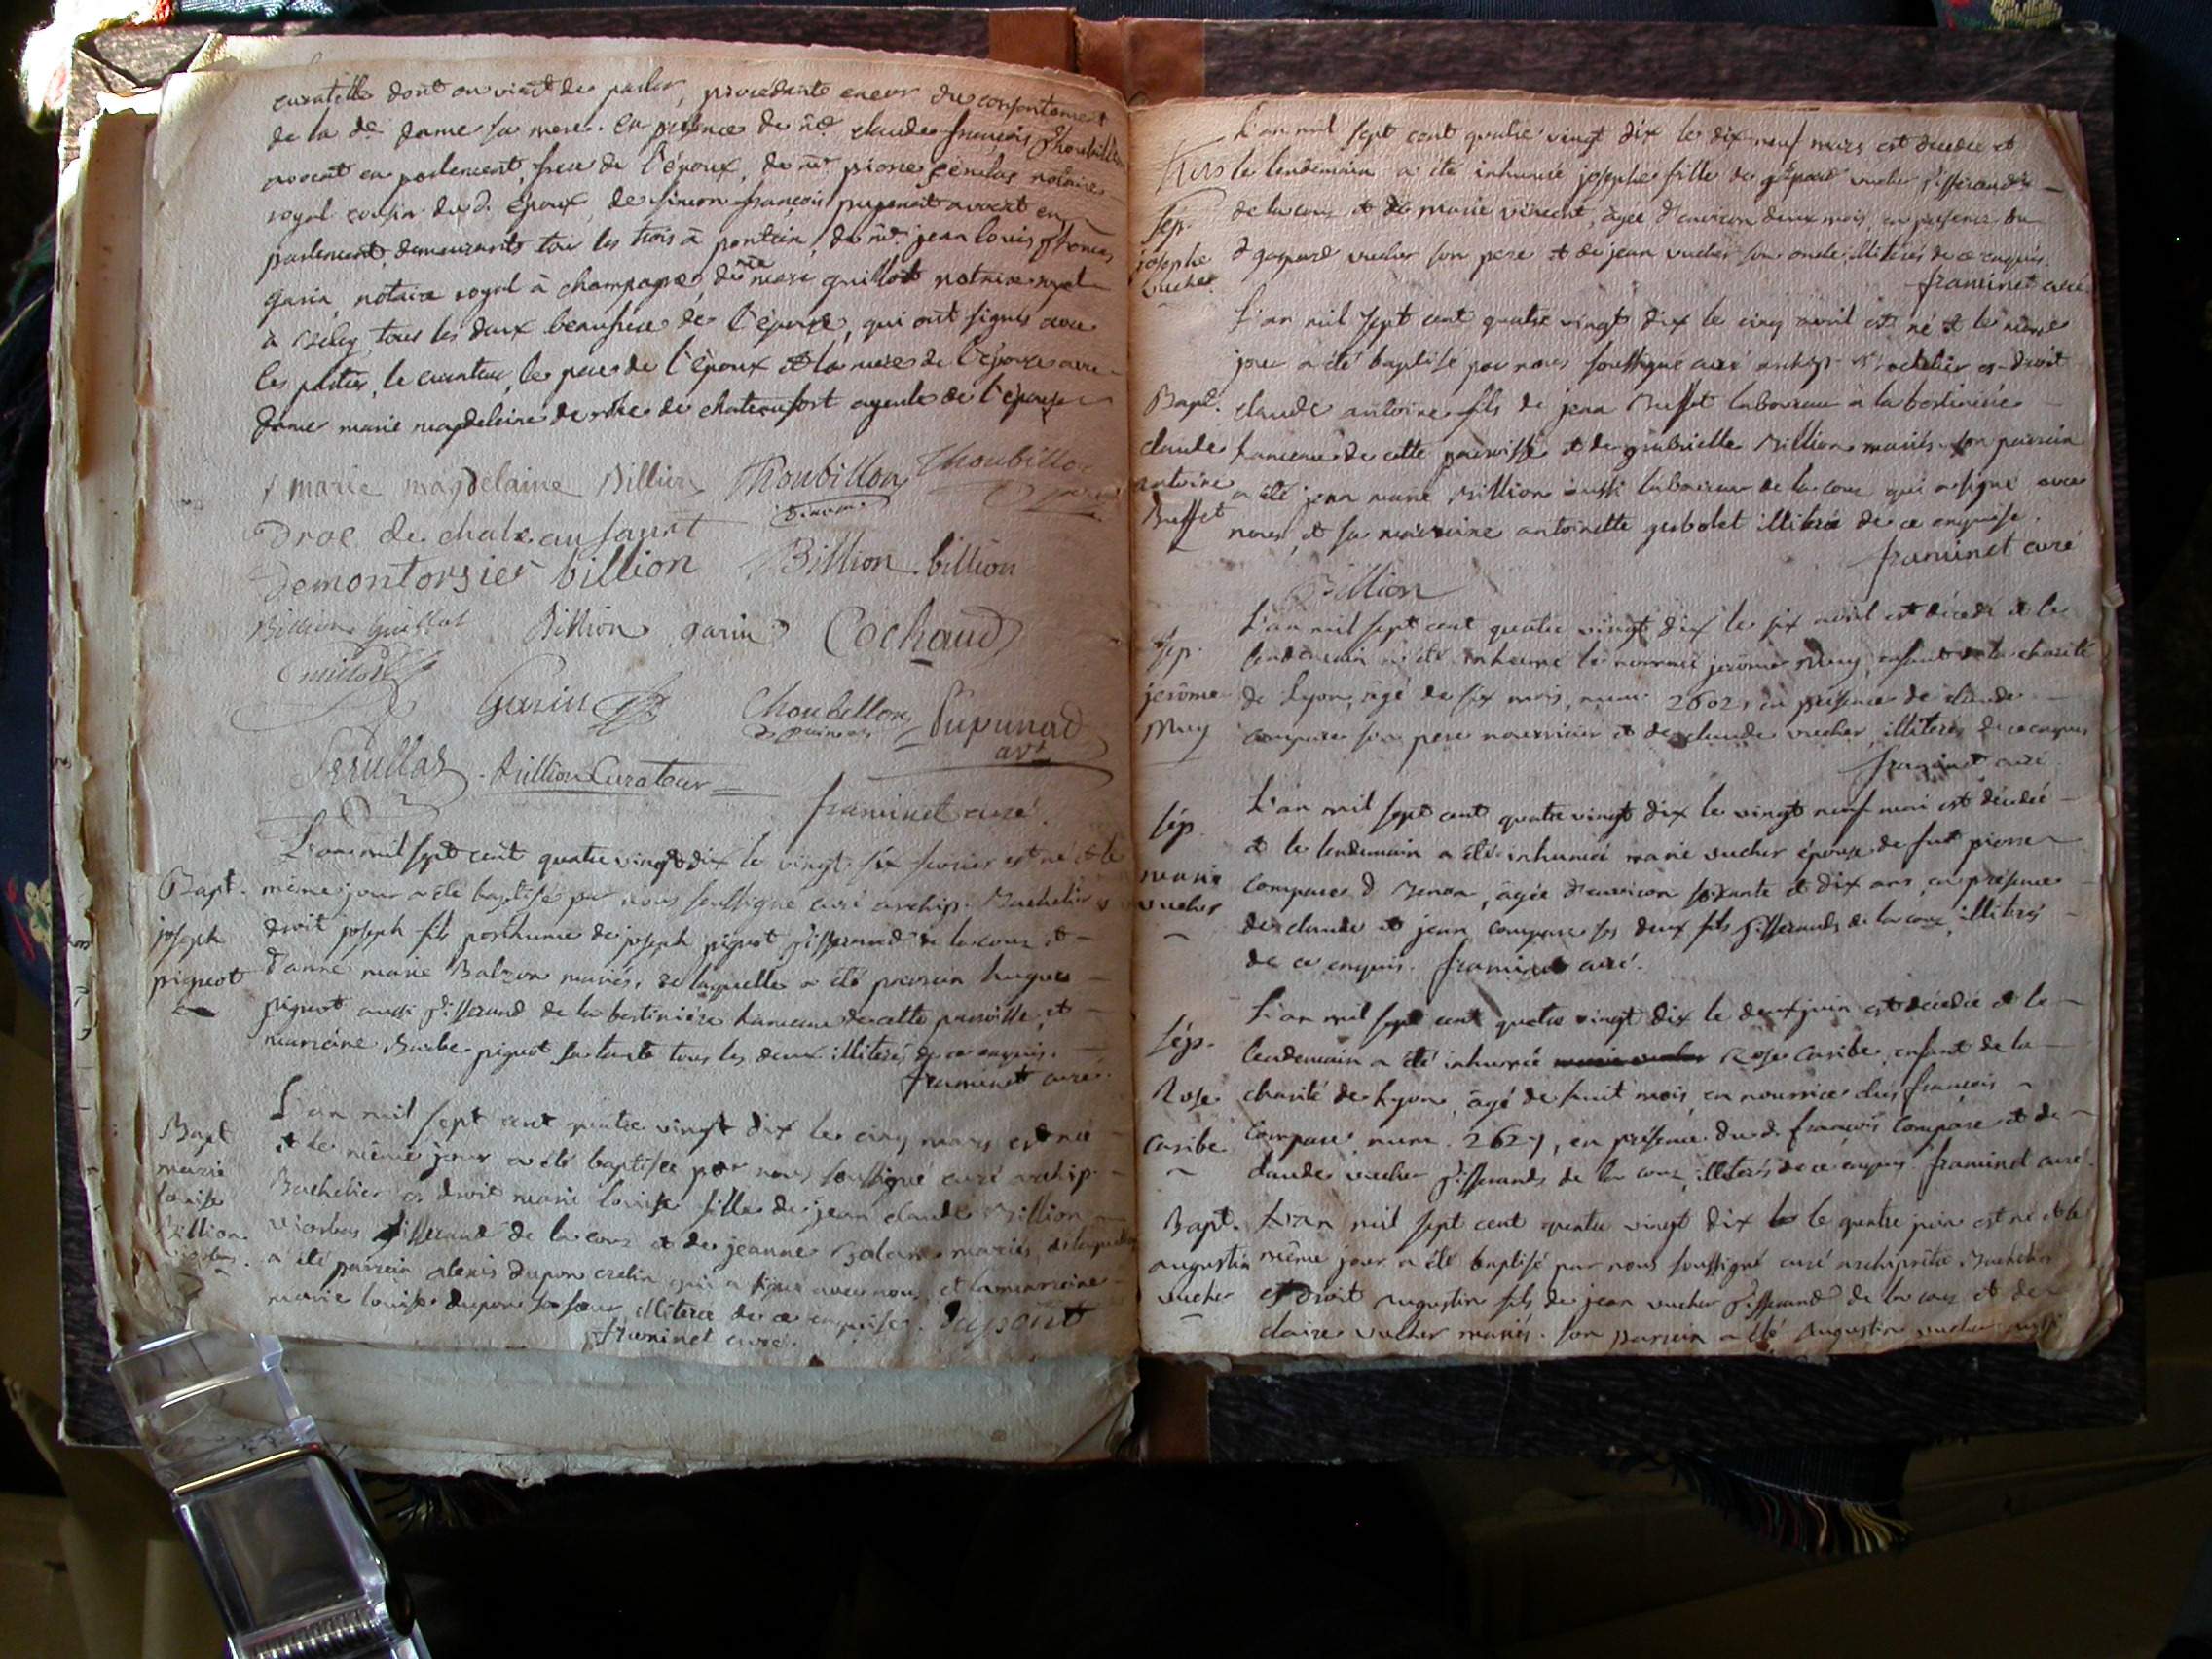 curatelle dont on vient de parler, procédante encor du consentement
de la de dame sa mere. en présence de me claude françois Choubillon
avocat en parlement, frere de l'époux, de me pierre notaire
royal cousin du d. époux, de simon françois avocat en
parlement, demeurants tous les trois à de me jean louis
garin notaire royal à champagne, de me guillot notaire royal
à tous les deux beaufrere de l'épouse, qui ont signés avec
les parties, le curateur, le pere de l'époux et la mere de l'épouse avec
dame marie magdeleine de de chateaufort ayeule de l'épouse
marie magdelaine Billion Choubillon Choubillon
Droe de chateaufaurt
Demontorsier billion Billion billion
Billion Guillot Billion garin Cochaud
Guillot Garin Choubillon
Billion Curateur
framinet curé.
L'an mil sept cent quatre vingt dix le vingt six fevrier est né et le
Bapt. même jour a été baptisé par nous soussigné curé archip. Bachelier
joseph droit joseph fils posthume de joseph pigeot tisserand de la couz et
pigeot d'anne marie mariés, de laquelle a été parrain hugues
pigeot aussi tisserand de la bertiniere hameau de cette paroisse, et
marraine Barbe pigeot sa tante tous les deux illiterés de ce enquis.
framinet curé.
L'an mil sept cent quatre vingt dix le cinq mars est née
Bapt et le même jour a été baptisée par nous soussigné curé archip.
marie louise Bachelier es droit marie louise fille de jean claude Billion
Billion tisserand de la couz et de jeanne mariés, de laquelle
a été parrain alexis dupon qui a signé avec nous, et la marraine
marie louise dupon sa sœur illiterée de ce enquise. dupont
framinet curé.
L'an mil sept cent quatre vingt dix le dix neuf mars est decedée et
le lendemain a été inhumée josephe fille de gaspard vucher tisserand
Sép. de la couz et de marie vincent, agée d'environ deux mois, en presence du
josephe d gaspard vucher son pere et de jean vucher son oncle illiterés de ce enquis.
vucher framinet curé
L'an mil sept cent quatre vingt dix le cinq avril est né et le même
jour a été baptisé par nous soussigné curé archip. Bachelier es droit
Bapt. claude antoine fils de jean Buffet laboureur à la bertiniere
claude hameau de cette paroisse et de gabrielle Billion mariés. son parrain
antoine a été jean marie Billion aussi laboureur de la couz qui a signé avec
Buffet nous, et sa marraine antoinette illiterée de ce enquise.
framinet curé
Billion
L'an mil sept cent quatre vingt dix le six avril est decedé et le
Sép. lendemain a été inhumé le nommé jerôme Muy, enfant de la charité
jerôme de Lyon, agé de six mois, num. 2602, en présence de claude
Muy compare son pere nourricier et de claude vucher, illiterés de ce enquis
framinet curé
L'an mil sept cent quatre vingt dix le vingt neuf mai est décédée
Sép. et le lendemain a été inhumée marie vucher épouse de fut pierre
marie compare d agée d'environ soixante et dix ans, en présence
vucher de claude et jean compare ses deux fils tisserands de la couz, illiterés
de ce enquis. framinet curé.
L'an mil sept cent quatre vingt dix le deux juin est décédée et le
Sép. lendemain a été inhumée Rose Caribe, enfant de la
Rose charité de Lyon, agé de huit mois, en nourrice chés françois
Caribe Compare, num. 2627, en présence du d. françois Compare et de
claude vucher tisserands de la couz, illiterés de ce enquis. framinet curé.
Bapt. L'an mil sept cent quatre vingt dix le quatre juin est né et le
augustin même jour a été baptisé par nous soussigné curé archiprêtre, Bachelier
vucher es droit Augustin fils de jean vucher tisserand de la couz et de
claire vucher mariés. son parrain a été Augustin vucher aussi